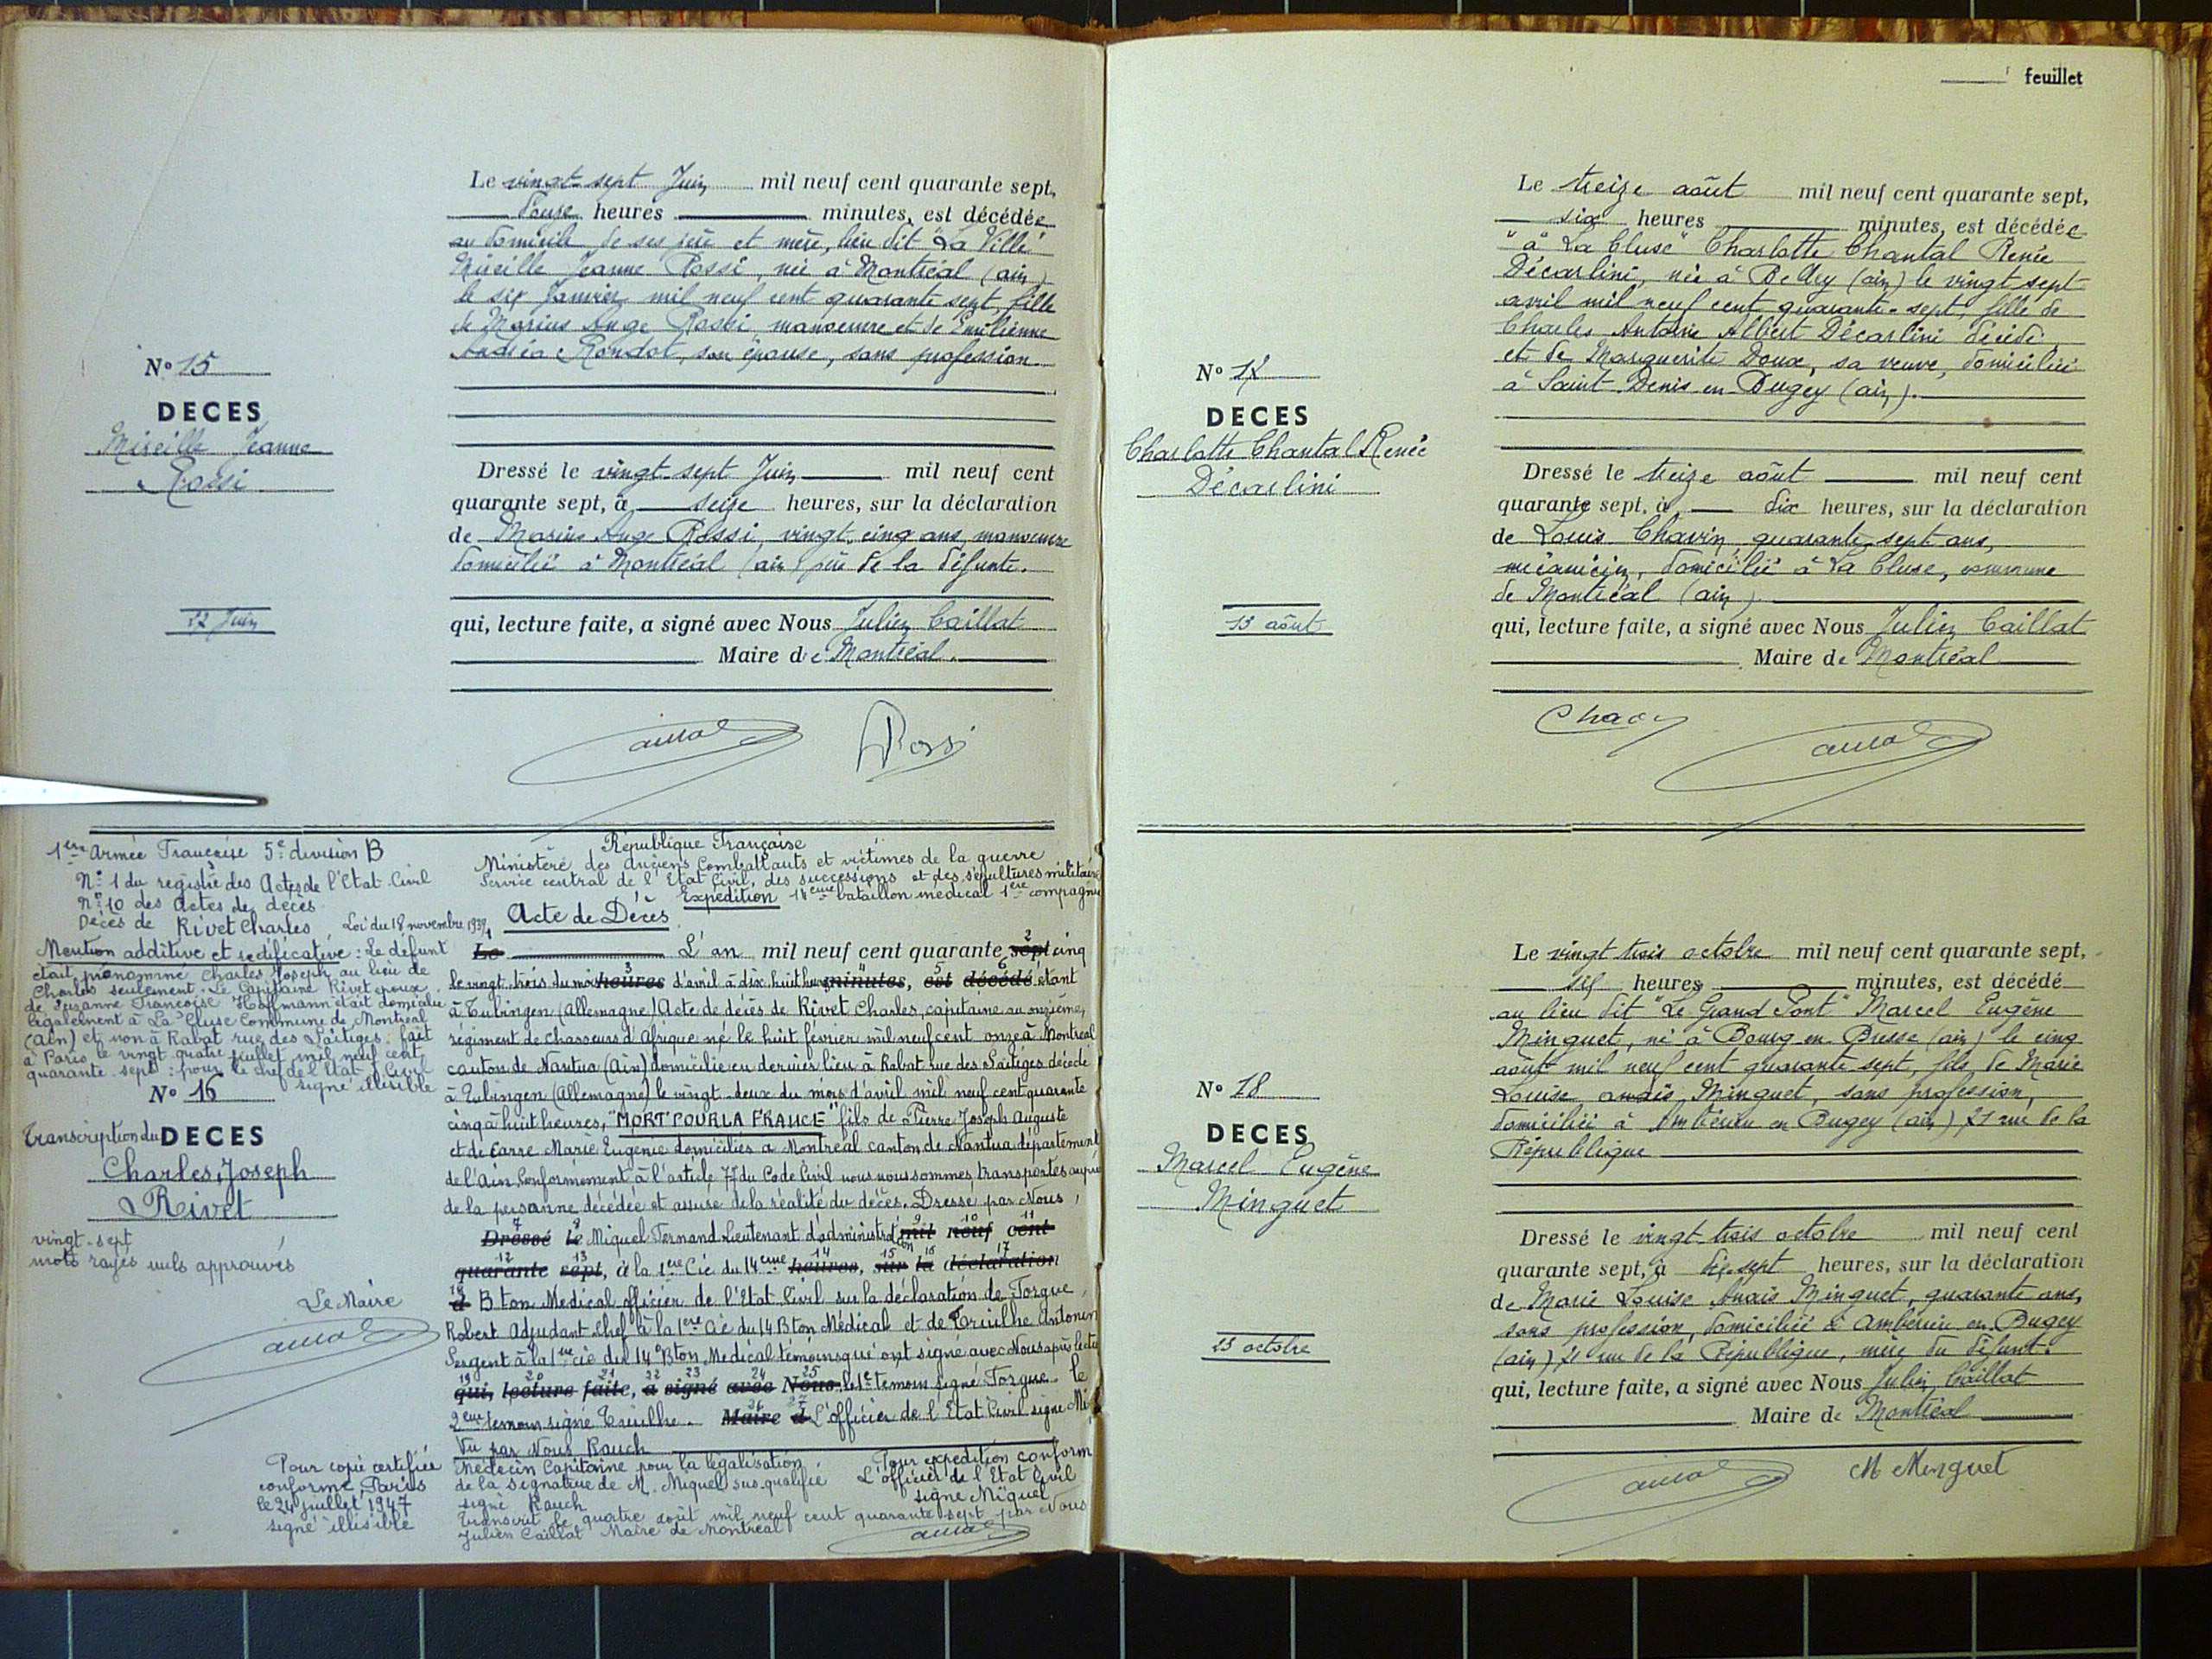 Le vingt-sept Juin mil neuf cent quarante sept,
douze heures minutes, est décédée
au domicile de ses père et mère, lieu dit "La Ville"
Mireille Jeanne Rossi, née à Montréal (ain)
le six Janvier mil neuf cent quarante sept, fille
de Marius Ange Rossi, manoeuvre et de Emilienne
Andréa Rondot, son épouse, sans profession.
N° 15
DECES
Mireille Jeanne
Rossi
27 Juin
Dressé le vingt-sept Juin mil neuf cent
quarante sept, à seize heures, sur la déclaration
de Marius Ange Rossi, vingt-cinq ans, manoeuvre
domicilié à Montréal (ain) père de la défunte.
qui, lecture faite, a signé avec Nous Julien Caillat
Maire de Montréal.
Rossi
1ère Armée Française 5e division B
N° 1 du registre des Actes de l'Etat Civil
N° 10 des Actes de décès
Décès de Rivet Charles, Loi du 18 novembre 1939
Mention additive et rectificative : Le défunt
était prénommé Charles Joseph au lieu de
Charles seulement. Le Capitaine Rivet époux
de Suzanne Françoise Hoffmann était domicilié
légalement à La Cluse Commune de Montréal
(Ain) et non à Rabat rue des Saitigès. fait
à Paris le vingt quatre juillet mil neuf cent
quarante-sept : pour le chef de l'Etat Civil
signé illisible
N° 16
Transcription du DECES
Charles, Joseph
Rivet
vingt-sept
mots rayés nuls approuvés
Le Maire
Pour copie certifiée
conforme, Paris
le 24 juillet 1947
signé illisible
République Française
Ministère des Anciens Combattants et victimes de la guerre
Service central de l'Etat Civil, des successions et des sépultures militaires
Expédition 14ème bataillon médical 1ère compagnie
Acte de Décès
1 Le L'an mil neuf cent quarante 2 sept cinq
le vingt trois du mois 3 heures d'avril à dix huit heures 4 minutes, 5 est 6 décédé étant
à Tubingen (Allemagne) Acte de décès de Rivet Charles, capitaine au onzième,
régiment de chasseurs d'Afrique né le huit février mil neuf cent onze à Montréal
canton de Nantua (Ain) domicilié en dernier lieu à Rabat rue des Saitigès décédé
à Tubingen (Allemagne) le vingt-deux du mois d'avril mil neuf cent quarante
cinq à huit heures, "MORT POUR LA FRANCE" fils de Pierre Joseph Auguste
et de Carre Marie Eugénie domiciliés à Montréal canton de Nantua département
de l'Ain. Conformément à l'article 77 du Code Civil nous nous sommes transportés auprès
de la personne décédée et assuré de la réalité du décès. Dressé par Nous,
7 Dressé 8 le Miquel Fernand Lieutenant d'administration 9 mil 10 neuf 11 cent
12 quarante 13 sept, à la 1ère Cie du 14ème 14 heures, 15 sur 16 la 17 déclaration
18 d B ton Médical officier de l'Etat Civil sur la déclaration de Forgue,
Robert Adjudant chef à la 1ère Cie du 14 B ton Médical et de Treuilhe Antonin
Sergent à la 1ère cie du 14e B ton Médical témoins qui ont signé avec Nous après lecture
19 qui, 20 lecture 21 faite, 22 a 23 signé 24 avec 25 Nous le 1e témoin signé Forgue le
2ème témoin signé Treuilhe. 26 Maire 27 d L'officier de l'Etat Civil signé Mi
Vu par Nous Rauch
Médecin Capitaine pour la légalisation
de la signature de M. Miquel sus-qualifié
signé Rauch
Pour expédition conforme
L'officier de l'Etat Civil
signé Miquel
Transcrit le quatre août mil neuf cent quarante-sept par Nous
Julien Caillat Maire de Montréal
feuillet
Le treize août mil neuf cent quarante sept,
six heures minutes, est décédée
"à "La Cluse" Charlotte Chantal Renée
Décarlini, née à Belley (ain) le vingt sept
avril mil neuf cent quarante-sept, fille de
Charles Antoine Albert Décarlini décédé
et de Marguerite Doux, sa veuve, domiciliée
à Saint-Denis-en-Bugey (ain).
N° 17
DECES
Charlotte Chantal Renée
Décarlini
13 août
Dressé le treize août mil neuf cent
quarante sept, à dix heures, sur la déclaration
de Louis Chavin, quarante-sept ans,
mécanicien, domicilié à La Cluse, commune
de Montréal (ain)
qui, lecture faite, a signé avec Nous Julien Caillat
Maire de Montréal
Le vingt trois octobre mil neuf cent quarante sept,
heures minutes, est décédé
au lieu dit "Le Grand Pont" Marcel Eugène
Minguet, né à Bourg-en-Bresse (ain) le cinq
août mil neuf cent quarante sept, fils de Marie
Louise Anaïs Minguet, sans profession,
domiciliée à Ambérieu en Bugey (ain), 21 rue de la
République
N° 18
DECES
Marcel Eugène
Minguet
23 octobre
Dressé le vingt-trois octobre mil neuf cent
quarante sept, à dix-sept heures, sur la déclaration
de Marie Louise Anaïs Minguet, quarante ans,
sans profession, domiciliée à Ambérieu en Bugey
(ain) 21 rue de la République, mère du défunt.
qui, lecture faite, a signé avec Nous Julien Caillat
Maire de Montréal
M Minguet